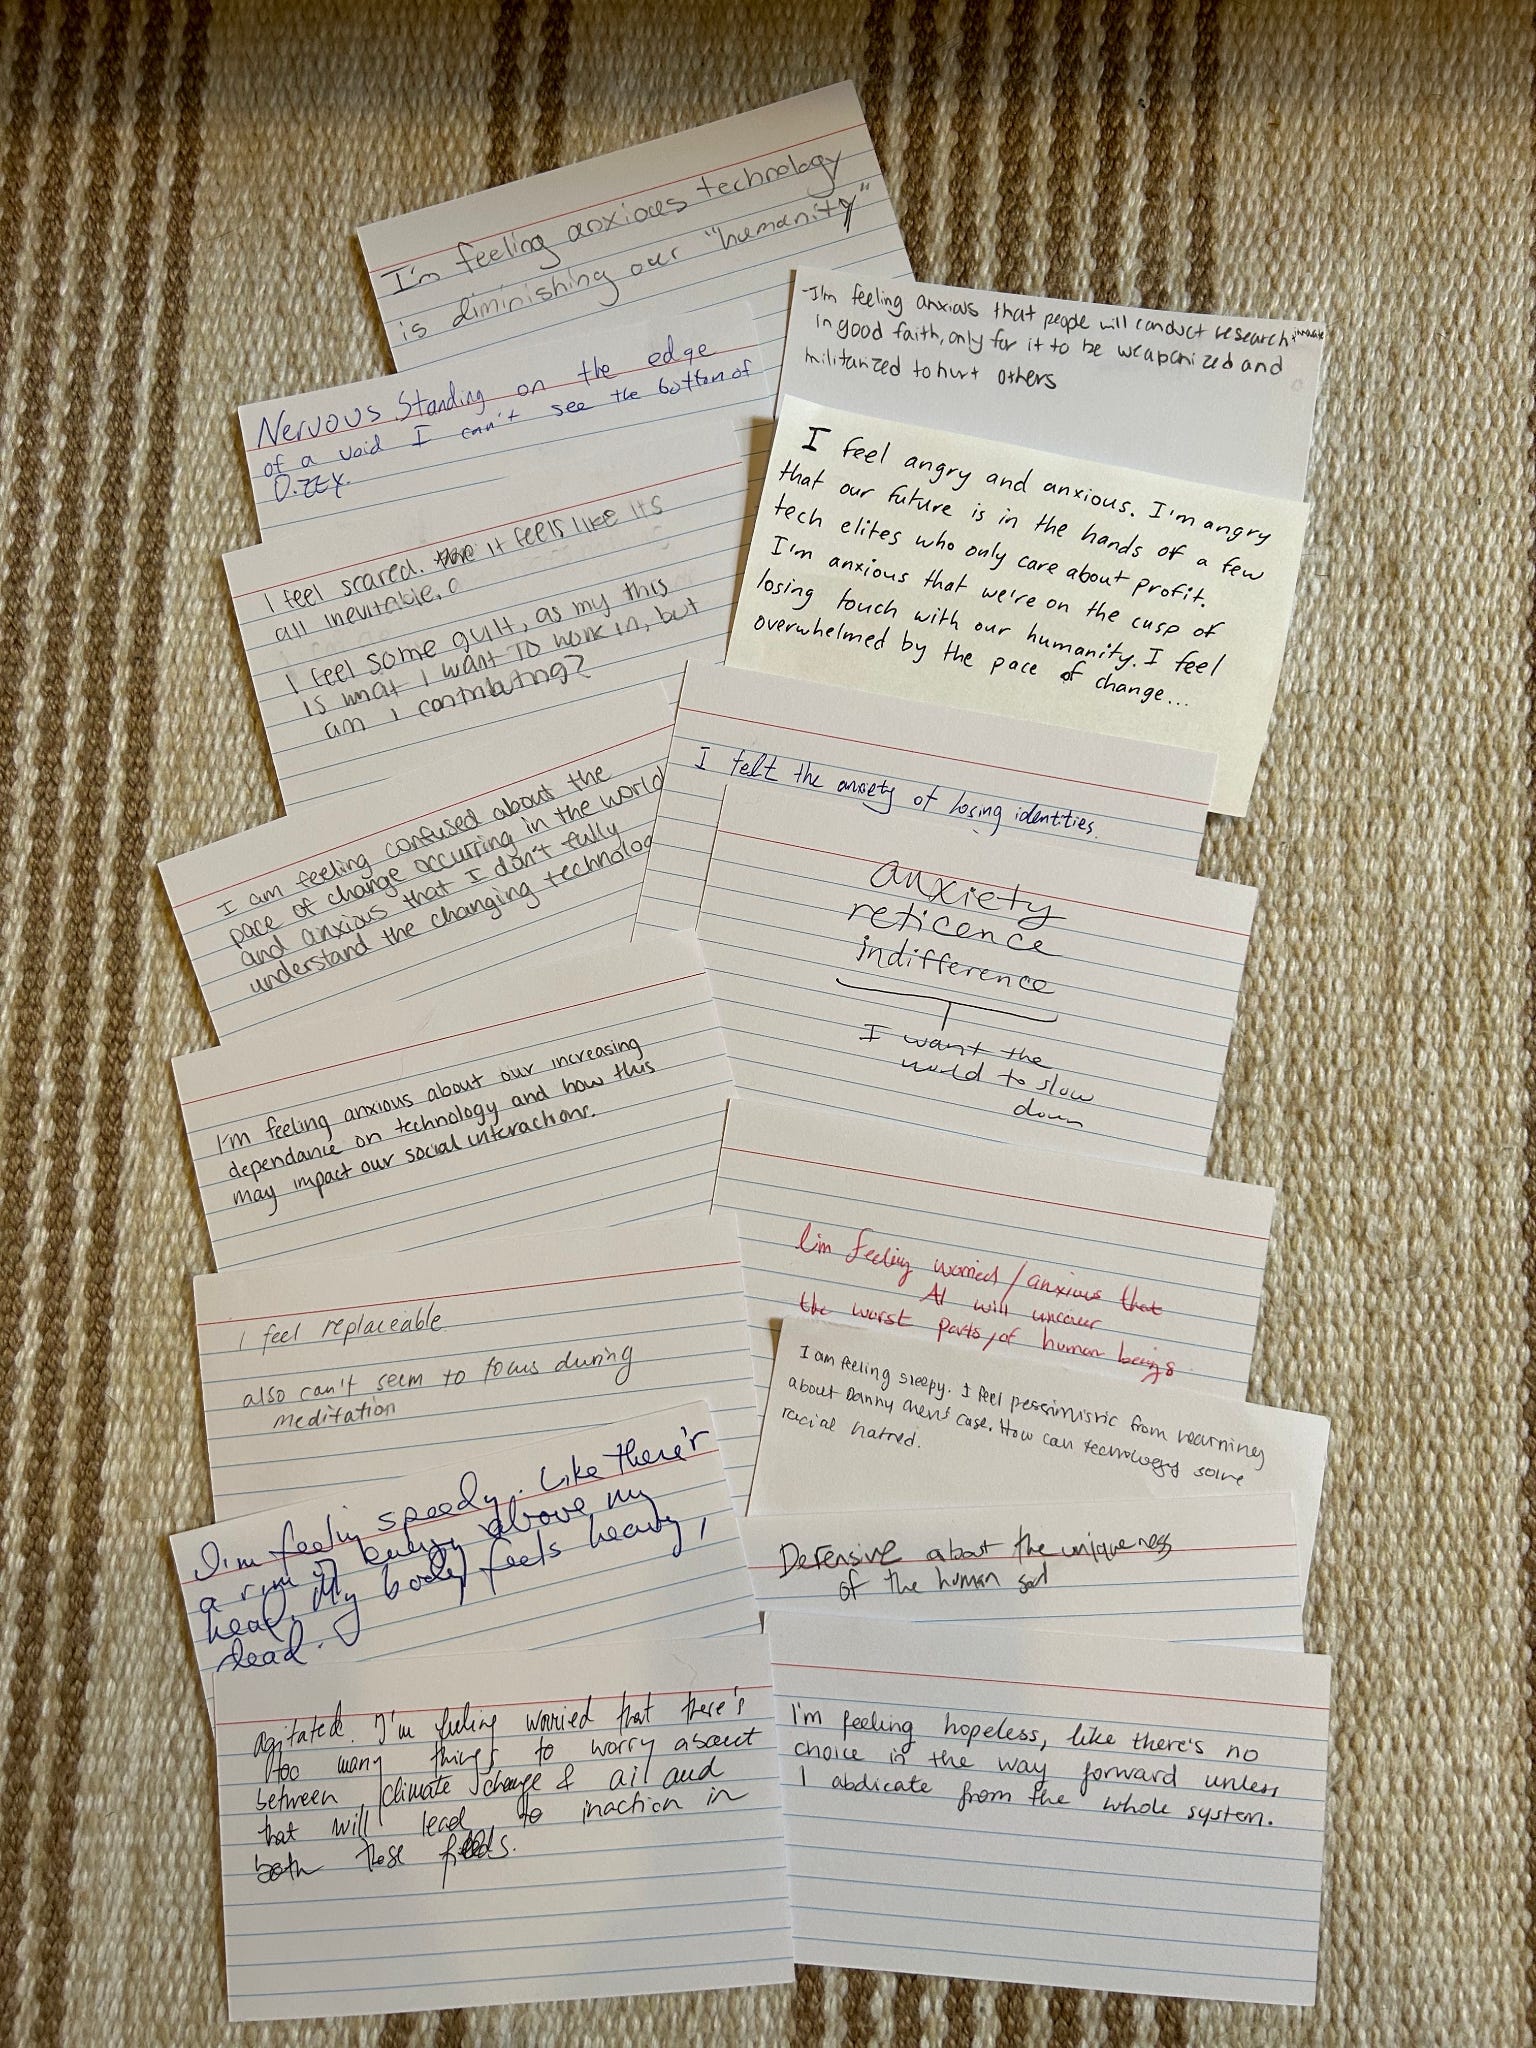 I'm feeling anxious technology
is diminishing our "humanity"
Nervous. Standing on the edge
of a void I can't see the bottom of
Dizzy.
I feel scared. it feels like its
all inevitable,
I feel some guilt, as my this
is what I want to work in, but
am I contributing?
I am feeling confused about the
pace of change occurring in the world
and anxious that I don't fully
understand the changing technolog
I'm feeling anxious about our increasing
dependance on technology and how this
may impact our social interactions.
I feel replaceable
also can't seem to focus during
meditation
I'm feeling speedy. Like there's
a rim of energy above my
head. My body feels heavy,
dead.
agitated. I'm feeling worried that there's
too many things to worry about
between climate change & ai and
that will lead to inaction in
both these fields.
-I'm feeling anxious that people will conduct research +
in good faith, only for it to be weaponized and
militarized to hurt others
I feel angry and anxious. I'm angry
that our future is in the hands of a few
tech elites who only care about profit.
I'm anxious that we're on the cusp of
losing touch with our humanity. I feel
overwhelmed by the pace of change...
I felt the anxiety of losing identities.
anxiety
reticence
indifference
I want the
world to slow
down
I'm feeling worried / anxious that
AI will uncover
the worst parts of human beings
I am feeling sleepy. I feel pessimistic from learning
about Danny Chen's case. How can technology solve
racial hatred.
Defensive about the uniqueness
of the human soul
I'm feeling hopeless, like there's no
choice in the way forward unless
I abdicate from the whole system.